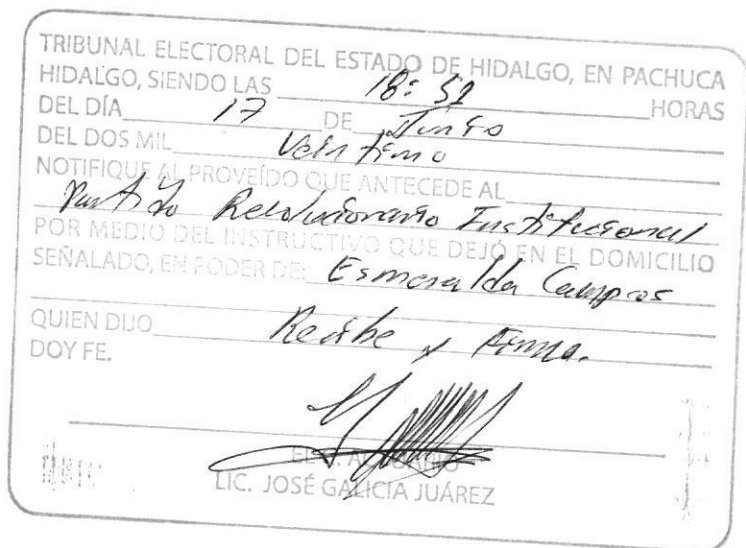 TRIBUNAL ELECTORAL DEL ESTADO DE HIDALGO, EN PACHUCA
HIDALGO, SIENDO LAS 18:52 HORAS
DEL DÍA 17 DE Junio
DEL DOS MIL Veintiuno
NOTIFIQUE AL PROVEÍDO QUE ANTECEDE AL
Partido Revolucionario Institucional
POR MEDIO DEL INSTRUCTIVO QUE DEJÓ EN EL DOMICILIO
SEÑALADO, EN PODER DE: Esmeralda Campos
QUIEN DIJO Recibe y Firma.
DOY FE.
LIC. JOSÉ GALICIA JUÁREZ